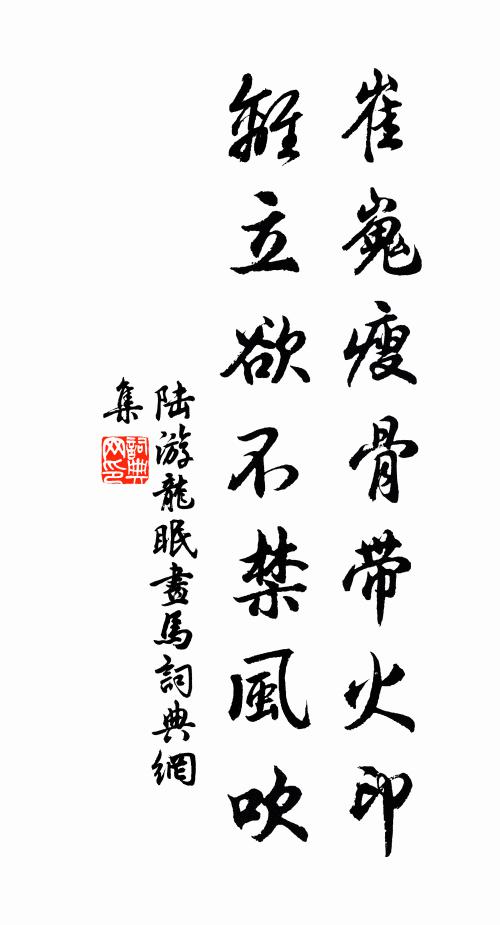 崔嵬瘦骨帶火印
離立欲不禁風吹
陸游龍眠畫馬詞典網
集
詞典網印